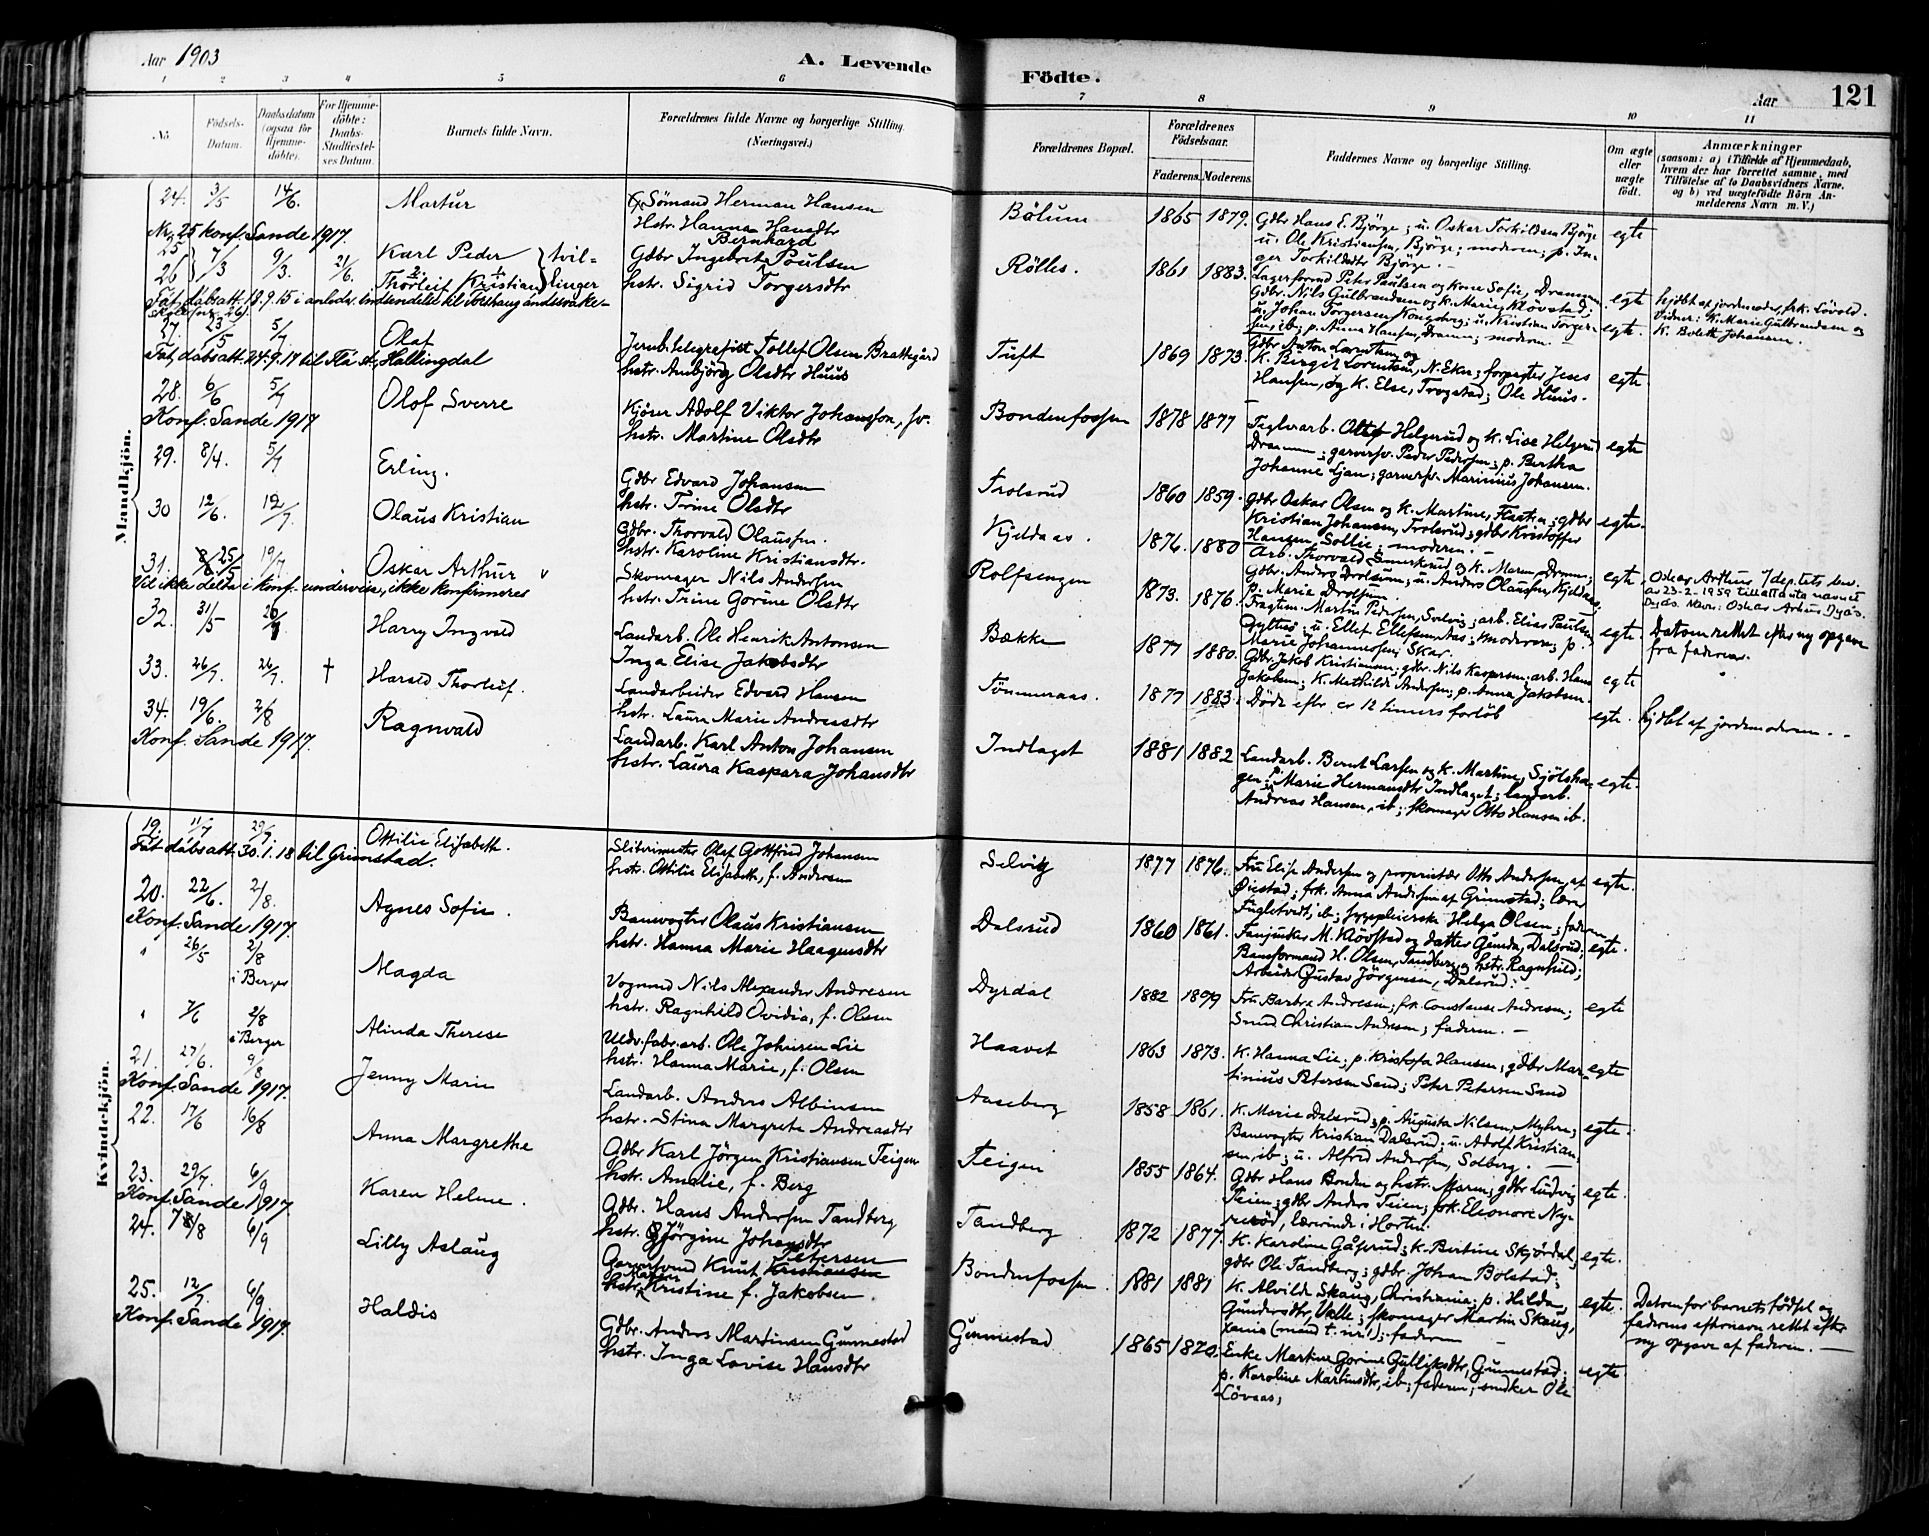 Aar 1903
A. Levende
Födte.
Aar
121
1 2 3 4 5 6 7 8 9 10 11
No
Födsels-Datum.
Daabsdatum (ogsaa for Hjemme-döbte).
For Hjemme-döbte: Daabs-Stadfæstel-ses Datum.
Barnets fulde Navn.
Forældrenes fulde Navne og borgerlige Stilling. (Næringsvei.)
Forældrenes Bopæl.
Forældrenes Födselsaar.
Faderens. Moderens.
Faddernes Navne og borgerlige Stilling.
Om ægte eller uægte födt.
Anmærkninger
(saasom: a) i Tilfælde af Hjemmedaab,
hvem der har forrettet samme, med
Tilföielse af to Daabsvidners Navne,
og b) ved uægtefödte Börn An-
melderens Navn m. V.)
Mandkjön.
24. 3/5 14/6. Martur
Sömand Herman Hansen
Hstr. Hanna Hansdtr
Bölum 1865 1879.
Gdbr Hans E. Bjørge; u. Oskar Torkildsen Bjørge
u. Ole Kristiansen, Bjørge; moderen; p. In-
ger Torkildsdtr Bjørge. –
egte
No 25 konf. Sande 1917.
25 26 7/3 9/3. 21/6.
Karl Peder } tvil-
Thorleif Kristian } linger
Gdbr Ingebret Bernhard Poulsen
hstr. Sigrid Torgersdtr
Rölles. 1861 1883.
Lagerformd Peter Paulsen og kone Sofie, Drammen
Gdbr. Nils Gulbrandsen og k. Marie Kløvstad;
u. Johan Torgersen Kongsberg; u. Kristian Torger-
sen, ib; p. Anna Hansen, Dramm; moderen
egte
egte.
hjdbt af jordmoder, frk. Lövold.
Vidner: K. Marie Gulbrandsen og
K. Bolette Johansen.
27. 23/5 5/7 Olaf
Jernb.telegrafist Tollef Olsen Brattegård
hstr. Ambjörg Olsdtr Huus
Tuft 1869 1873.
Gdbr Anton Lorentsen og
K. Birgit Lorentsen, N. Eker; forpagter Jens
Hansen, og K. Else, Trogstad; Ole Huus.
egte
Fåt dåbsatt. 24.9.17 til Flå st., Hallingdal
28. 6/6 5/7 Olof Sverre
Kjörer Adolf Viktor Johansson, sv.
hstr. Martine Olsdtr
Bondenfossen 1878 1877
Teglverarb. Olef Helgerud og k. Lise Helgerud
Dramm; garversv. Peder Pedersen; p. Bertha
Johanne Ljan; garversv. Marinius Johansen.
egte
Konf. Sande 1917
29. 8/4. 5/7 Erling.
Gdbr Edvard Johansen
hstr. Trine Olsdtr
Trolsrud 1860 1859.
Gdbr Oskar Olsen og K. Martine, ; gdbr
Kristian Johansen, Trolsrud; gdbr Kristoffer
Hansen, Sollie; moderen. –
egte.
30 12/6. 12/7. Olaus Kristian
Gdbr. Thorvald Olaussen.
hstr. Karoline Kristiansdtr.
Kjeldaas. 1876. 1880
Arb. Thorvald og K. Maren, Dramm;
Gdbr. Anders Drolsum; u. Anders Olausen, Kjeldaas;
p. Marie Drolsum.
egte
31. 25/5 19/7 Oskar Arthur
Skomager Nils Andersen
hstr. Trine Gorine Olsdtr
Rolfsengen 1873. 1876.
Fragtm. Martin Pedersen, Selvig; arb. Elias Paulsen
Gyltesø; u. Ellef Ellefsen, Aas; moderen; p.
Marie Johannesen, Skar.
egte
Oskar Arthur
av 23-2-1959 tillatt å ta navnet
Dyås. Navn: Oskar Artur Dyås.
Vil ikke delta i konf.-undervisn., ikke konfirmeres
32. 31/5 26/7 Harry Ingvald
Landarb. Ole Henrik Antonsen
Inga Elise Jakobsdtr
Bække 1877 1880.
Gdbr. Jakob Kristiansen; gdbr. Nils Kaspersen; arb. Hans
Jakobsen; K. Mathilde Andersen; p. Anna Jakobsen.
egte
Datoen rettet efter ny opgave
fra faderen.
33. 26/7. 26/7. † Harald Thorleif.
Landarbeider Edvard Hansen
hstr. Laura Marie Andreasdtr
Tømmeraas. 1877 1883.
Døde efter ca 12 timers forløb
egte.
hjdbt af jordemoderen. –
34. 19/6. 2/8 Ragnvald
Landarb. Karl Anton Johansen
hstr. Laura Kaspara Johansdtr
Indlaget 1881 1882
Landarb. Bernt Larsen og K. Martine, Sjölsha-
gen; p. Marie Hermansdtr Indlaget; landarb.
Andreas Hansen, ib; skomager Otto Hansen ib.
egte.
Konf. Sande 1917.
Kvindekjön.
19. 11/7 29/7 Ottilie Elisabeth.
Slibermester Olaf Gottfried Johansen
hstr. Ottilie Elisabeth, f. Andersen
Selvig 1877 1876.
Fru Elise Andersen og proprietær Otto Andersen, af
Øiestad; frk. Anna Andersen af Grimstad; lærer
Fugletvedt, ib; sygepleierske Helga Olsen; faderen
egte.
Fåt dåbsatt 30.1.18 til Grimstad.
20. 22/6. 2/8. Agnes Sofie.
Banevogter Olaus Kristiansen
hstr. Hanna Marie Haagensdtr
Dalsrud 1860 1861.
Fanjunker M. Klövstad og datter Gunda, Dalsrud;
Baneformand H. Olsen, Tandberg og hstr. Ragnhild;
Arbeider Gustav Jörgensen, Dalsrud;
egte.
Konf. Sande 1917.
" 26/5 2/8 i Berger Magda
Vognmd Nils Alexander Andresen
hstr. Ragnhild Ovidia, f. Olsen
Dyrdal 1882 1899
Fru Barbra Andresen; frk Constanse Andresen;
Smed Christian Andresen; faderen. –
egte
" 7/6 2/8 i Berger Alinda Therese
Uldv.fabr.arb. Ole Johnsen Lie
hstr. Hanna Marie, f. Olsen
Haavet 1863 1873.
K. Hanna Lie; p. Kristofa Hansen; gdbr Mar-
tinius Petersen Sand; Peter Petersen Sand
egte
21. 27/6. 9/8 Jenny Marie
Landarb. Anders Albinsen
hstr. Stina Margrete Andreasdtr
Aaseberg 1858 1861.
K. Marie Dalsrud; p. Augusta Nilsen, Myhre;
Banevogter Kristian Dalsrud; u. Adolf Kristian-
sen, ib; u. Alfred Andersen, Solberg. –
egte.
Konf. Sande 1917.
22. 17/6 16/8 Anna Margrethe
Gdbr Karl Jörgen Kristiansen Teigen
hstr. Amalie, f. Berg
Teigen 1855 1864.
Gdbr Hans Bonden og hstr. Maren; gdbr Ludvig
Teien; gdbr Anders Teien; frk. Eleonore Ny-
rerød, lærerinde i Horten.
egte.
23. 29/7. 6/9 Karen Helene.
Gdbr. Hans Andersen Tandberg
hstr. Jörgine Johansdtr
Tandberg 1872 1877.
K. Karoline Gåserud; K. Bertine Skjørdal,
gdbr Ole Tandberg; gdbr. Johan Bölstad;
egte.
Konf. Sande 1917
24. 7/8 6/9 Lilly Aslaug
Garversvend Knut Kristiansen Petersen
hstr. Kristine f. Jakobsen.
Bondenfossen. 1881 1881
K. Alvilde Skaug, Christiania; p. Hilda
Gundersdtr, Valle; skomager Martin Skaug,
Xania (mand t. nr 1); faderen –
egte.
Datoen for barnets födsel og
faderens efternavn rettet efter
ny opgave af faderen. –
25. 12/7. 6/9 Haldis
Gdbr. Anders Martinsen Gunnestad
hstr. Inga Lovise Hansdtr
Gunnestad 1865 1870.
Enke Martine Gorine Gulliksdtr, Gunnestad;
p. Karoline Martinsdtr, ib; faderen; snedker Ole
Lövaas;
egte
Konf. Sande 1917.